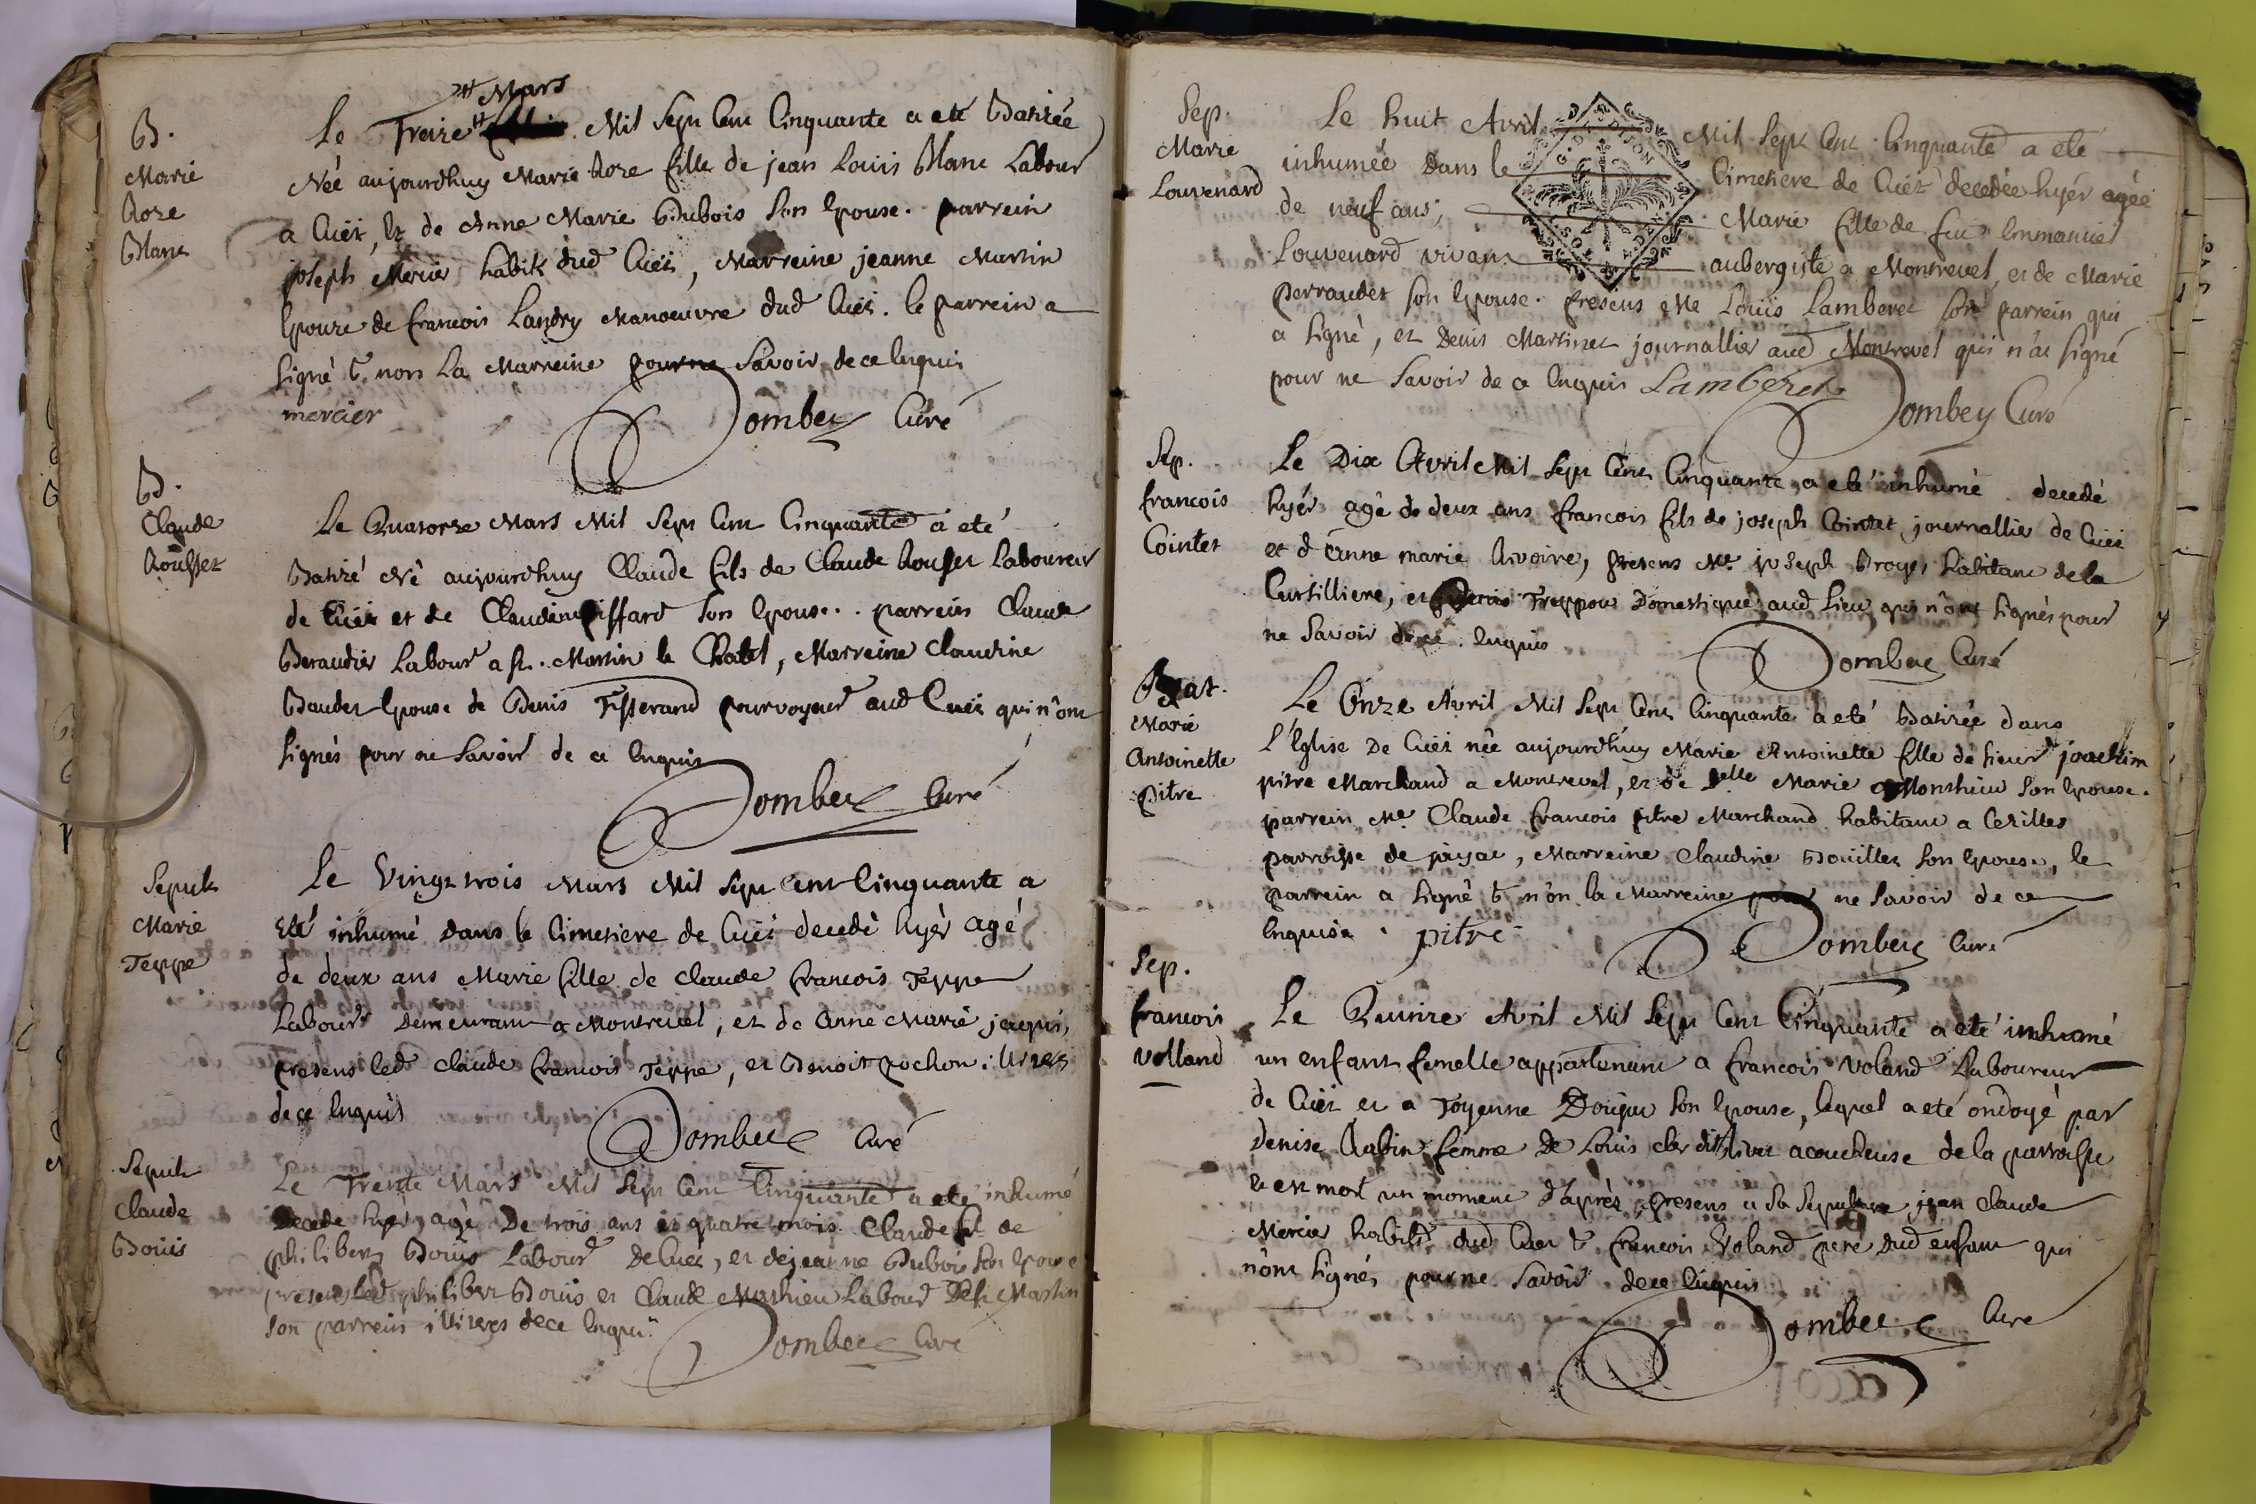 B.
Marie
Roze
Blanc
# Mars
Le Treize # Mil Sept Cent Cinquante a eté Batizée
Née aujourdhuy Marie Roze fille de jean Louis Blanc Labour
a Cuët, et de Anne Marie Dubois son Epouse. parrein
joseph Mercier habit dud Cuët, Marreine jeanne Martin
Epouze de francois Landry Manoeuvre dud Cuët. le parrein a
signé & non La Marreine pour ne savoir de ce Enquis
mercier Dombey Curé
B.
Claude
Rousset
Le Quatorze Mars Mil Sept Cent Cinquante a eté
Batizé Né aujourdhuy Claude fils de Claude Rousset Laboureur
de Cuët et de Claudine piffard son Epouse. parrein Claude
Beraudier Labour a st. Martin le Chatel, Marreine Claudine
Baudet Epouse de Denis Tisserand pourvoyeur aud Cuët qui n'ont
signés pour ne savoir de ce Enquis
Dombey Curé
Sepult
Marie
Teppe
Le Vingt trois Mars Mil Sept Cent Cinquante a
Eté inhumé Dans le Cimetiere de Cuët decedé hyèr agé
de deux ans Marie fille de claude francois Teppe
Labour Demeurant a Montrevel, et de Anne Marie
presens led claude francois Teppe, et Benoit pochon illitres
de ce Enquis
Dombey Curé
Sepult
Claude
Boüis
Le Trente Mars Mil Sept Cent Cinquante a eté inhumé
Decede hyer, agé De trois ans et quatre mois Claude fil de
philibert Boüis Labour De Cuet, et de jeanne Dubois son Epouse
presens led philibert Boüis et Claude Mathieu Labour De st Martin
son parrein illitres de ce Enqui
Dombey Curé
Sep.
Marie
Louvenard
G. DE DIJON
Le huit Avril Mil Sept Cent Cinquante a eté
inhumée Dans le Cimetiere de Cuët decedée hyér agée
de neuf ans, Marie fille de feu Emmanuel
Louvenard vivant aubergiste a Montrevel, et de Marie
perraudet son Epouse. presens Me Loüis Lamberet son parrein qui
a signé, et Denis Martinet journallier aud Montrevel qui n'a signé
pour ne savoir de ce Enquis Lamberet
Dombey Curé
Sep.
francois
Cointet
Le Dix Avril Mil Sept Cent Cinquante, a eté inhumé decedé
hyér agé de deux ans francois fils de joseph Cointet journallier de Cuët
et d'anne marie, presens Me joseph Broyer habitant de la
Curtilliere, et Denis Treppoz Domestique aud Lieu qui n'ont signés pour
ne savoir de ce Enquis
Dombey Curé
Bat.
Marie
Antoinette
Pitre
Le Onze Avril Mil Sept Cent Cinquante a eté Batizée dans
l'Eglise De Cuët née aujourdhuy Marie Antoinette fille de sieur joachim
pitre Marchand a Montrevel, et de Delle Marie Monthieu son Epouse.
parrein Me Claude francois pitre Marchand habitant a Cezilles
parroisse de jayat, Marreine Claudine Boüillet son Epouse, le
parrein a signé & n'on la Marreine pour ne savoir de ce
Enquise. pitre
Dombey Curé
Sep.
francois
Volland
Le Quinze Avril Mil Sept Cent Cinquante a eté inhumé
un enfant femelle appartenant a francois Voland Laboureur
de Cuët et a Toyenne Doujat son Epouse, lequel a eté ondoyé par
Denise Rabin femme de Louis acoucheuse de la parroisse
& est mort un moment d'après, presens a sa Sepulture jean Claude
Mercier habit dud Cuet & francois Voland pere dud enfant qui
n'ont signés pour ne savoir de ce Enquis
Dombey Curé